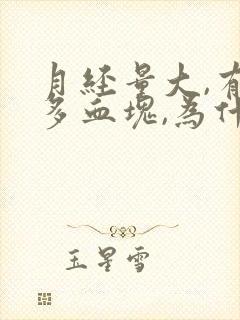 月经量大,有
多血块,為什
玉星雪